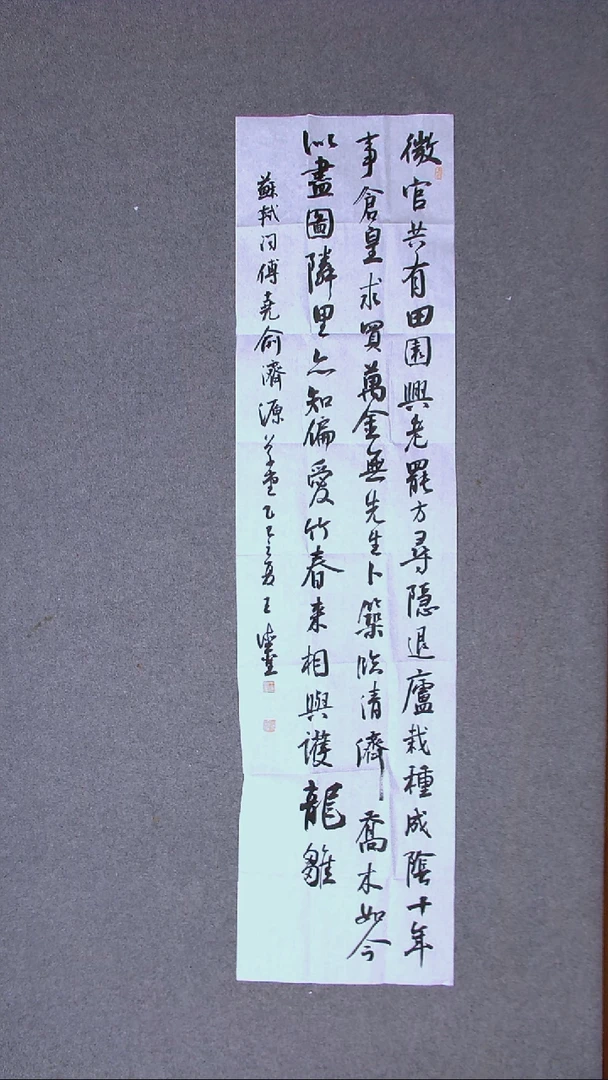 微官共有田園興老罷方尋隱退廬栽種成陰十年
事倉皇求買萬金無先生卜築臨清濟喬木如今
似畫圖隣里亦知偏愛竹春來相與護龍雛
蘇軾問傅堯俞濟源草堂乙巳之夏王